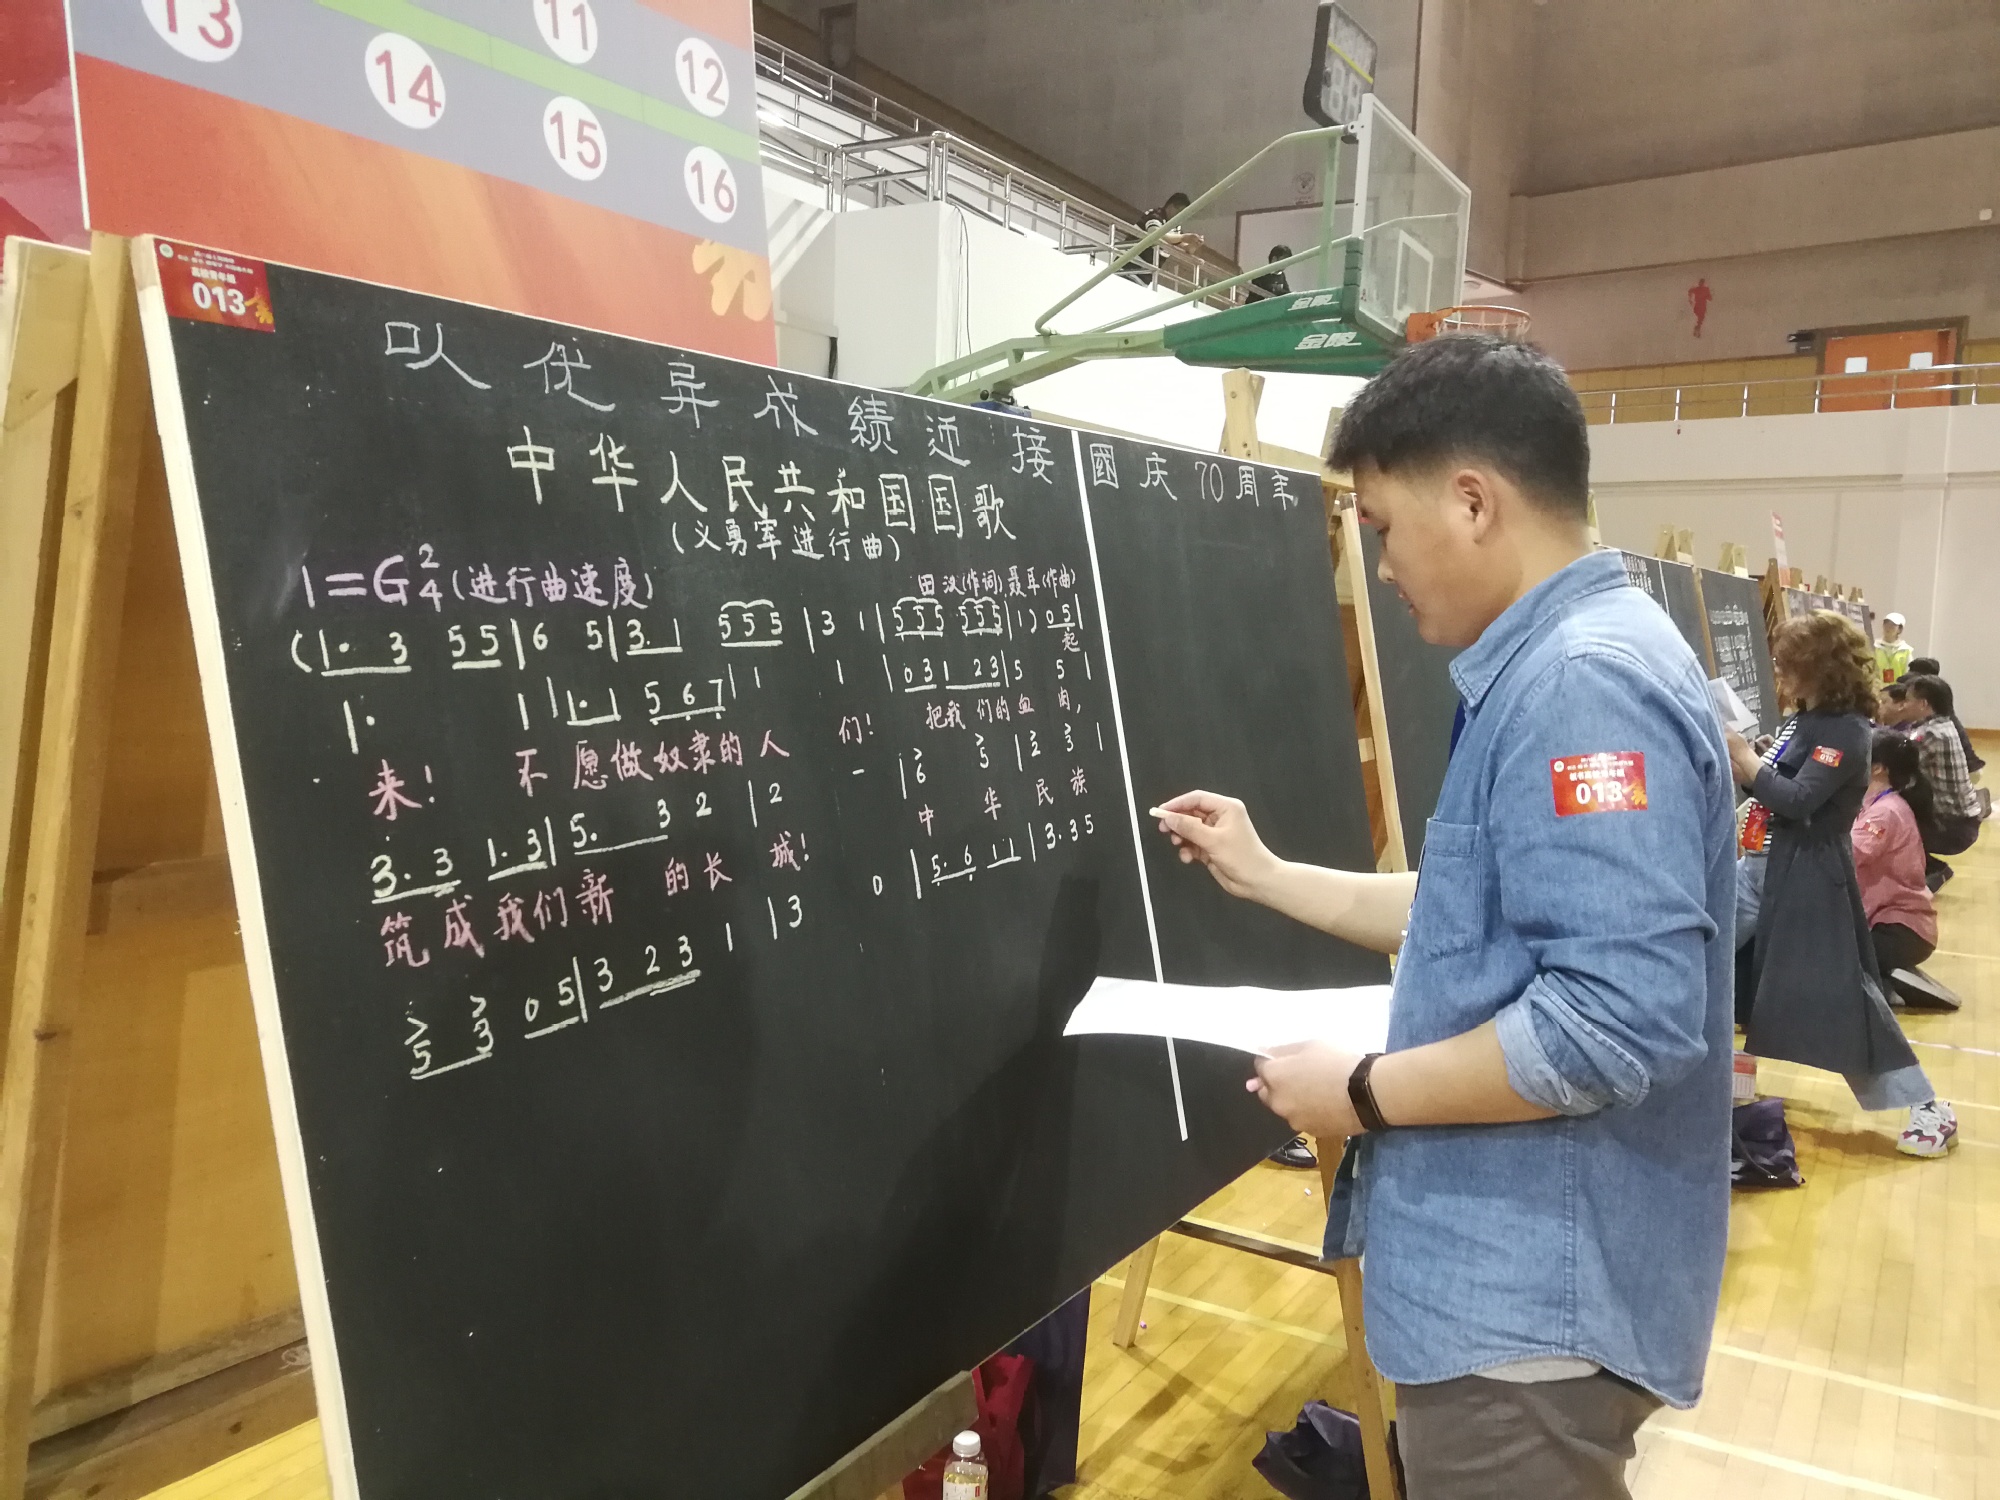 13
11
14
12
15
16
高校青年组
013
以优异成绩迎接國庆70周年
中华人民共和国国歌
(义勇军进行曲)
1=G 2/4 (进行曲速度)
田汉(作词) 聂耳(作曲)
(1· 3 5 5 | 6 5 | 3. 1 5 5 5 | 3 1 | 5 5 5 5 5 5 | 1) 0 5 |
起
1· 1 | 1· 1 5 6 7 | 1 1 | 0 3 1 2 3 | 5 5 |
来! 不愿做奴隶的人们! 把我们的血肉,
3. 3 1. 3 | 5. 3 2 | 2 - | 6 5 | 2 3 |
筑成我们新的长城! 中华民族
5 3 0 5 | 3 2 3 1 | 3 0 | 5. 6 1 1 | 3. 3 5
金陵
金陵
板书高校青年组
013